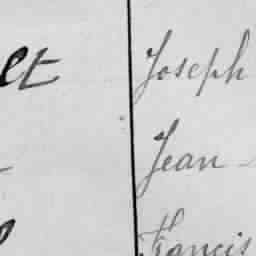 et Joseph
Jean
Francis